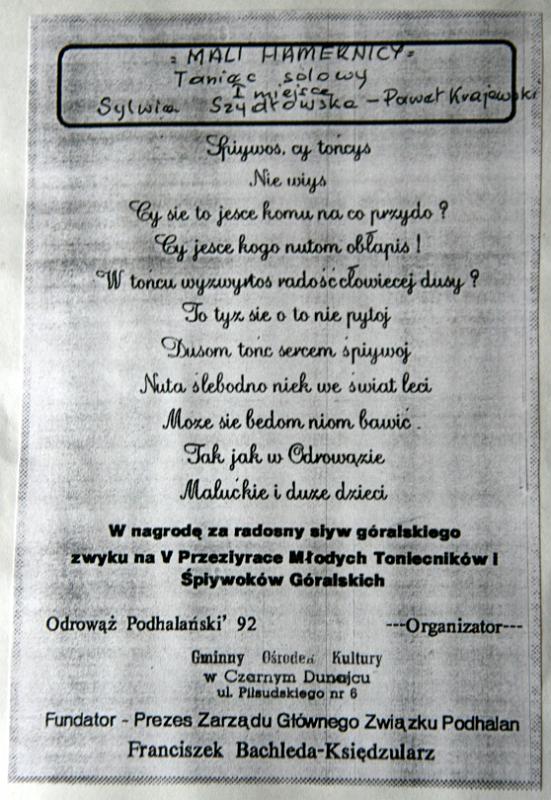 = MALI HAMERNICY =
Taniec solowy
I miejsce
Sylwia Szydłowska - Paweł Krajewski
Śpiywos, cy tońcys
Nie wiys
Cy sie to jesce komu na co przydo ?
Cy jesce kogo nutom obłapis !
W tońcu wyzwyrtos radość cłowiecej dusy ?
To tyz sie o to nie pytoj
Dusom tońc sercem śpiywoj
Nuta ślebodno niek we świat leci
Moze sie bedom niom bawić .
Tak jak w Odrowązie
Malućkie i duze dzieci
W nagrodę za radosny siyw góralskiego
zwyku na V Przeziyrace Młodych Toniecników i
Śpiywoków Góralskich
Odrowąż Podhalański' 92 ---Organizator---
Gminny Ośrodek Kultury
w Czarnym Dunajcu
ul. Piłsudskiego nr 6
Fundator - Prezes Zarządu Głównego Związku Podhalan
Franciszek Bachleda-Księdzularz